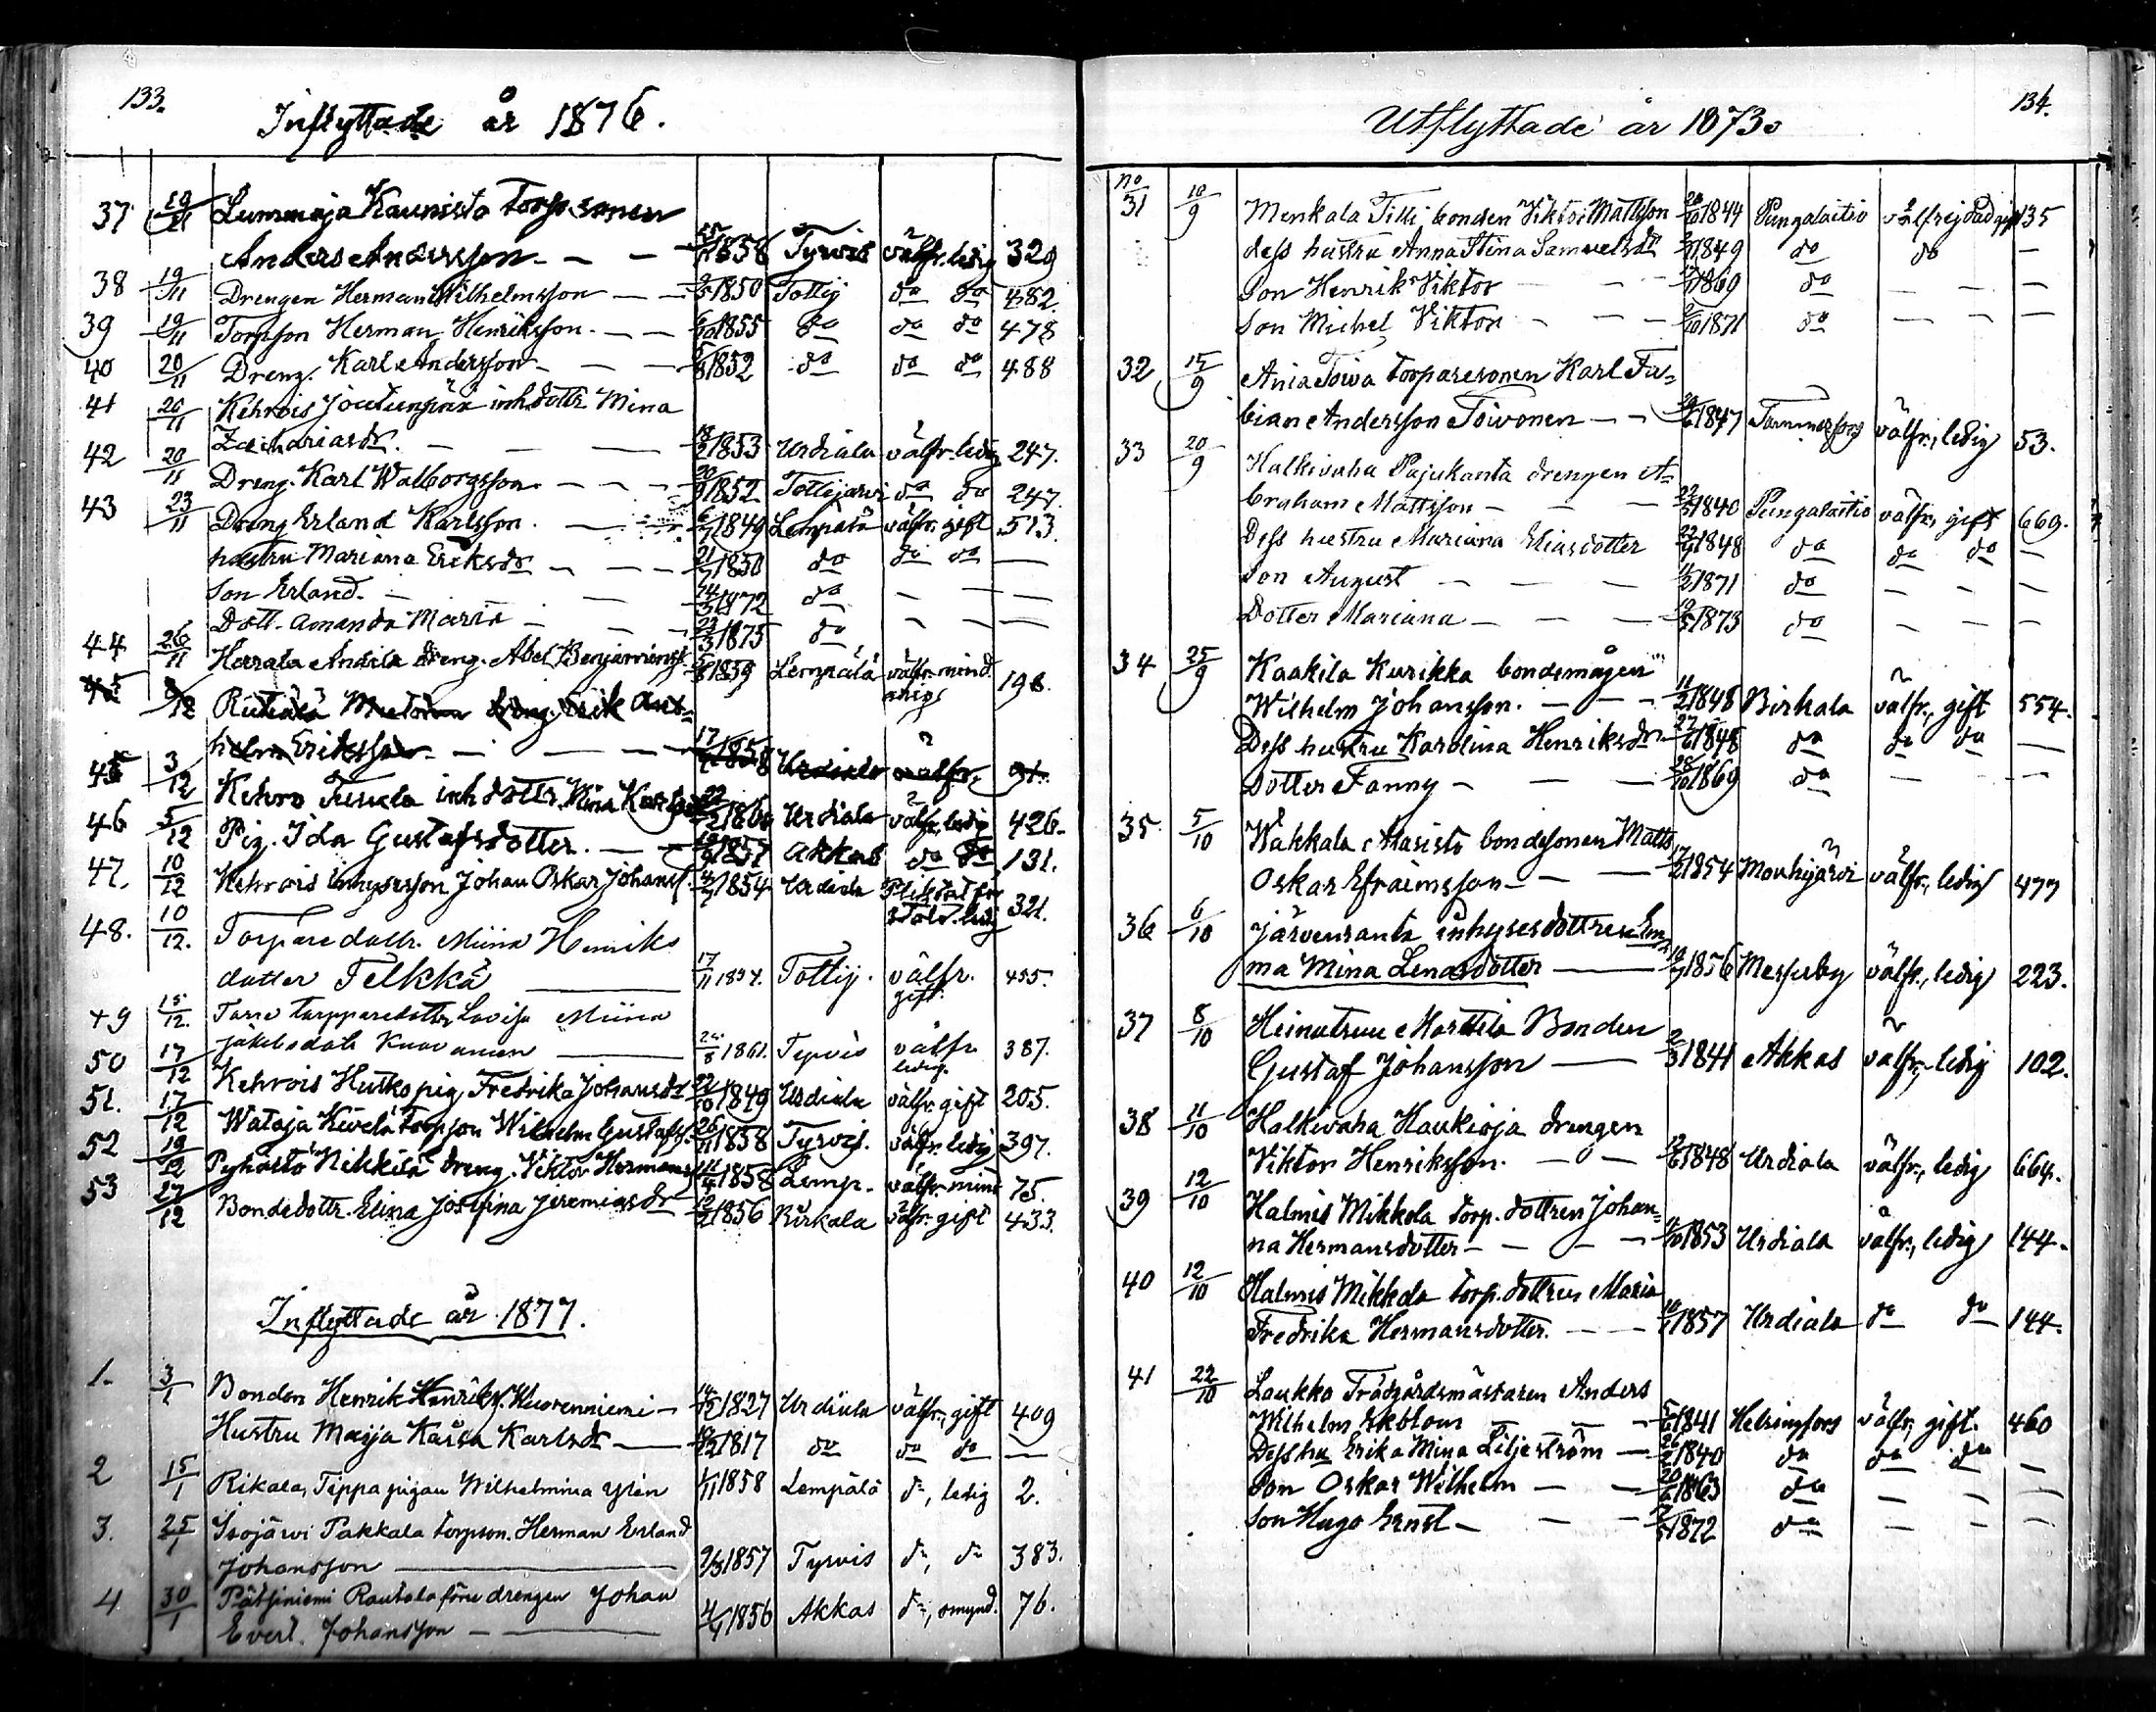 133.
Inflyttade år 1876.
37 19/11 Lummaja Kaunisto Torp.sonen
Anders Andersson 1858 Tyrvis välfr. ledig 329
38 19/11 Drengen Herman Wilhelmsson 1850 Tottij do do 482.
39 19/11 Torpson Herman Henriksson. 6/10 1855 do do do 478
40 20/11 Dreng. Karl Andersson 1852 do do do 488
41 20/11 Kehrois Joutunpää inh dottr Mina
Zachariasdr. 1853 Urdiala välfr. ledig 247.
42 20/11 Dreng. Karl Walborgsson 1852 Tottijärvi do do 247.
43 23/11 Dreng Erland Karlsson. 1849 Lempälä välfr. gift 513.
hustru Mariana Eriksdr 21/7 1850 do do do —
Son Erland. 1872 do — —
Dott. Amanda Maria 23/3 1875 do — —
44 26/11 Herrala Anttila dreng. Abel Benjaminss. 1859 Lempälä välfr. mind.
årigs 198.
dreng. Erik Ant-
helm Eriksson 17 1858 Urdiala välfr. 91.
45 3/12 Kehro Tursula inh dottr. Mina Karlsdr 1860 Urdiala välfr. ledig 426.
46 5/12 Pig. Ida Gustafsdotter. 1857 Akkas do do 131.
47. 10/12 Kehrois inhysesson Johan Oskar Johanss. 1854 Urdiala
ledig 321.
48. 10/12. Torpare dottr. Miina Henriks
dotter Telkkä 17/11 1854. Tottij. välfr.
gift. 455.
49 15/12. Tarre torpparedotter Lovisa Miina
Jakobsdotr Kuuvanen 24/8 1861. Tyrvis välfr.
ledig. 387.
50 17/12 Kehrois Hutko pig. Fredrika Johansdr 22/10 1849 Urdiala välfr. gift 205.
51. 17/12 Wataja Kivelä torpson Wilhelm Gustafss. 26/11 1858 Tyrvis. välfr. ledig 397.
52 19/12 Pyhältö Nikkilä dreng. Viktor Hermanss. 11/4 1858 Lemp. välfr. mind 75.
53 27/12 Bondedottr. Elina Josefina Jeremiasdr 12/2 1856 Birkala välfr. gift 433.
Inflyttade år 1877.
1. 3/1 Bonden Henrik Henrikss. Kuorenniemi 14/12 1827 Urdiala välfr., gift 409
Hustru Maija Kaisa Karlsdr 1817 do do do —
2 15/1 Rikala, Tippa pigan Wilhelmina Ylén 1/11 1858 Lempälä do, ledig 2.
3. 25/1 Isojärvi Pakkala torpson. Herman Erland
Johansson 2/3 1857 Tyrvis do, do 383.
4 30/1 Pätsiniemi Rautala förre drengen Johan
Evert. Johansson 4/4 1856 Akkas do, omynd. 76.
134.
Utflyttade år 1873.
No
31 10/9 Menkala Tilli bonden Viktor Mattsson 1844 Pungalaitio 135
dess hustru Anna Stina Samuelsdr 1849 do do —
Son Henrik Viktor 1869 do — — —
Son Michel Viktor 1871 do — — —
32 15/9 Ania Toiva torparesonen Karl Fa-
bian Andersson Toivonen 1847 Tammerfors välfr., ledig 53.
33 20/9 Halkivaha Pajukanta drengen A-
braham Mattsson 1840 Pungalaitio välfr., gift 669.
Dess hustru Mariana Eliasdotter 1848 do do do —
Son August 11/2 1871 do — — —
Dotter Mariana 1873 do — — —
34 25/9 Kaakila Kurikka bondemågen
Wilhelm Johansson. 11/2 1848 Birkala välfr., gift 554.
Dess hustru Karolina Henriksdr 27/6 1848 do do do —
Dotter Fanny 28/10 1869 do — — —
35 5/10 Wakkala Alasisto bondesonen Matts
Oskar Efraimsson 1854 Mouhijärvi välfr., ledig 477
36 6/10 Järvensanta inhysesdottren Em-
ma Mina Lenasdotter 1856 Messuby välfr., ledig 223.
37 8/10 Heinutruu Marttila Bonden
Gustaf Johansson 2/3 1841 Akkas välfr., ledig 102.
38 11/10 Halkivaha Haukioja drengen
Viktor Henriksson. 1848 Urdiala välfr., ledig 664.
39 12/10 Halmis Mikkola torp. dottren Johan-
na Hermansdotter 1853 Urdiala välfr., ledig 144.
40 12/10 Halmis Mikkola torp. dottren Maria
Fredrika Hermansdotter. 1857 Urdiala do do 144.
41 22/10 Laukko Trädgårdsmästaren Anders
Wilhelm Ekblom 1841 Helsingfors välfr., gift. 460
Dess hu Erika Mina Liljeström 26/2 1840 do do do —
Son Oskar Wilhelm 1863 do — — —
Son Hugo Ernst 1872 do — — —